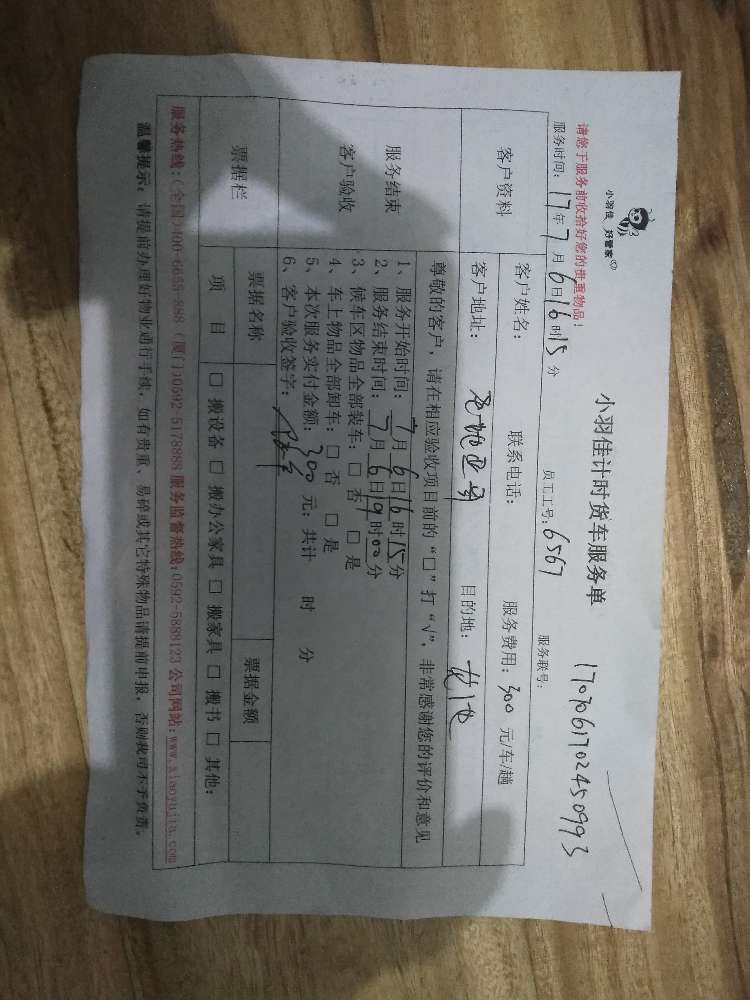 小羽佳 好管家
小羽佳计时货车服务单
1707061702450993
请您于服务前收拾好您的贵重物品！
服务时间：17年7月6日16时15分 员工工号：6567 服务联号：
客户资料
客户姓名： 联系电话： 服务费用：300 元/车/趟
客户地址： 目的地：
服务结束
客户验收
尊敬的客户，请在相应验收项目前的“□”打“√”，非常感谢您的评价和意见
1、服务开始时间：7月6日16时15分
2、服务结束时间：7月6日19时00分
3、候车区物品全部装车：□ 否 □ 是
4、车上物品全部卸车：□ 否 □ 是
5、本次服务实付金额：300元；共计 时 分
6、客户验收签字：
票据栏
票据名称 票据金额
项 目 □ 搬设备 □ 搬办公家具 □ 搬家具 □ 搬书 □ 其他：
服务热线：(全国)400-6655-888 (厦门)0592-5178888 服务监督热线：0592-5888123 公司网站：www.xiaoyujia.com
温馨提示：请提前办理好物业通行手续，如有贵重、易碎或其它特殊物品请提前申报，否则我司不予负责。